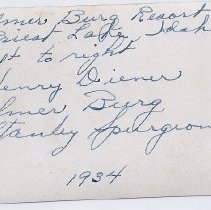 lmer Burg Resort
riest Lake, Idah
ft to right
Henry Diener
lmer Burg
tanley Spurgeon
1934